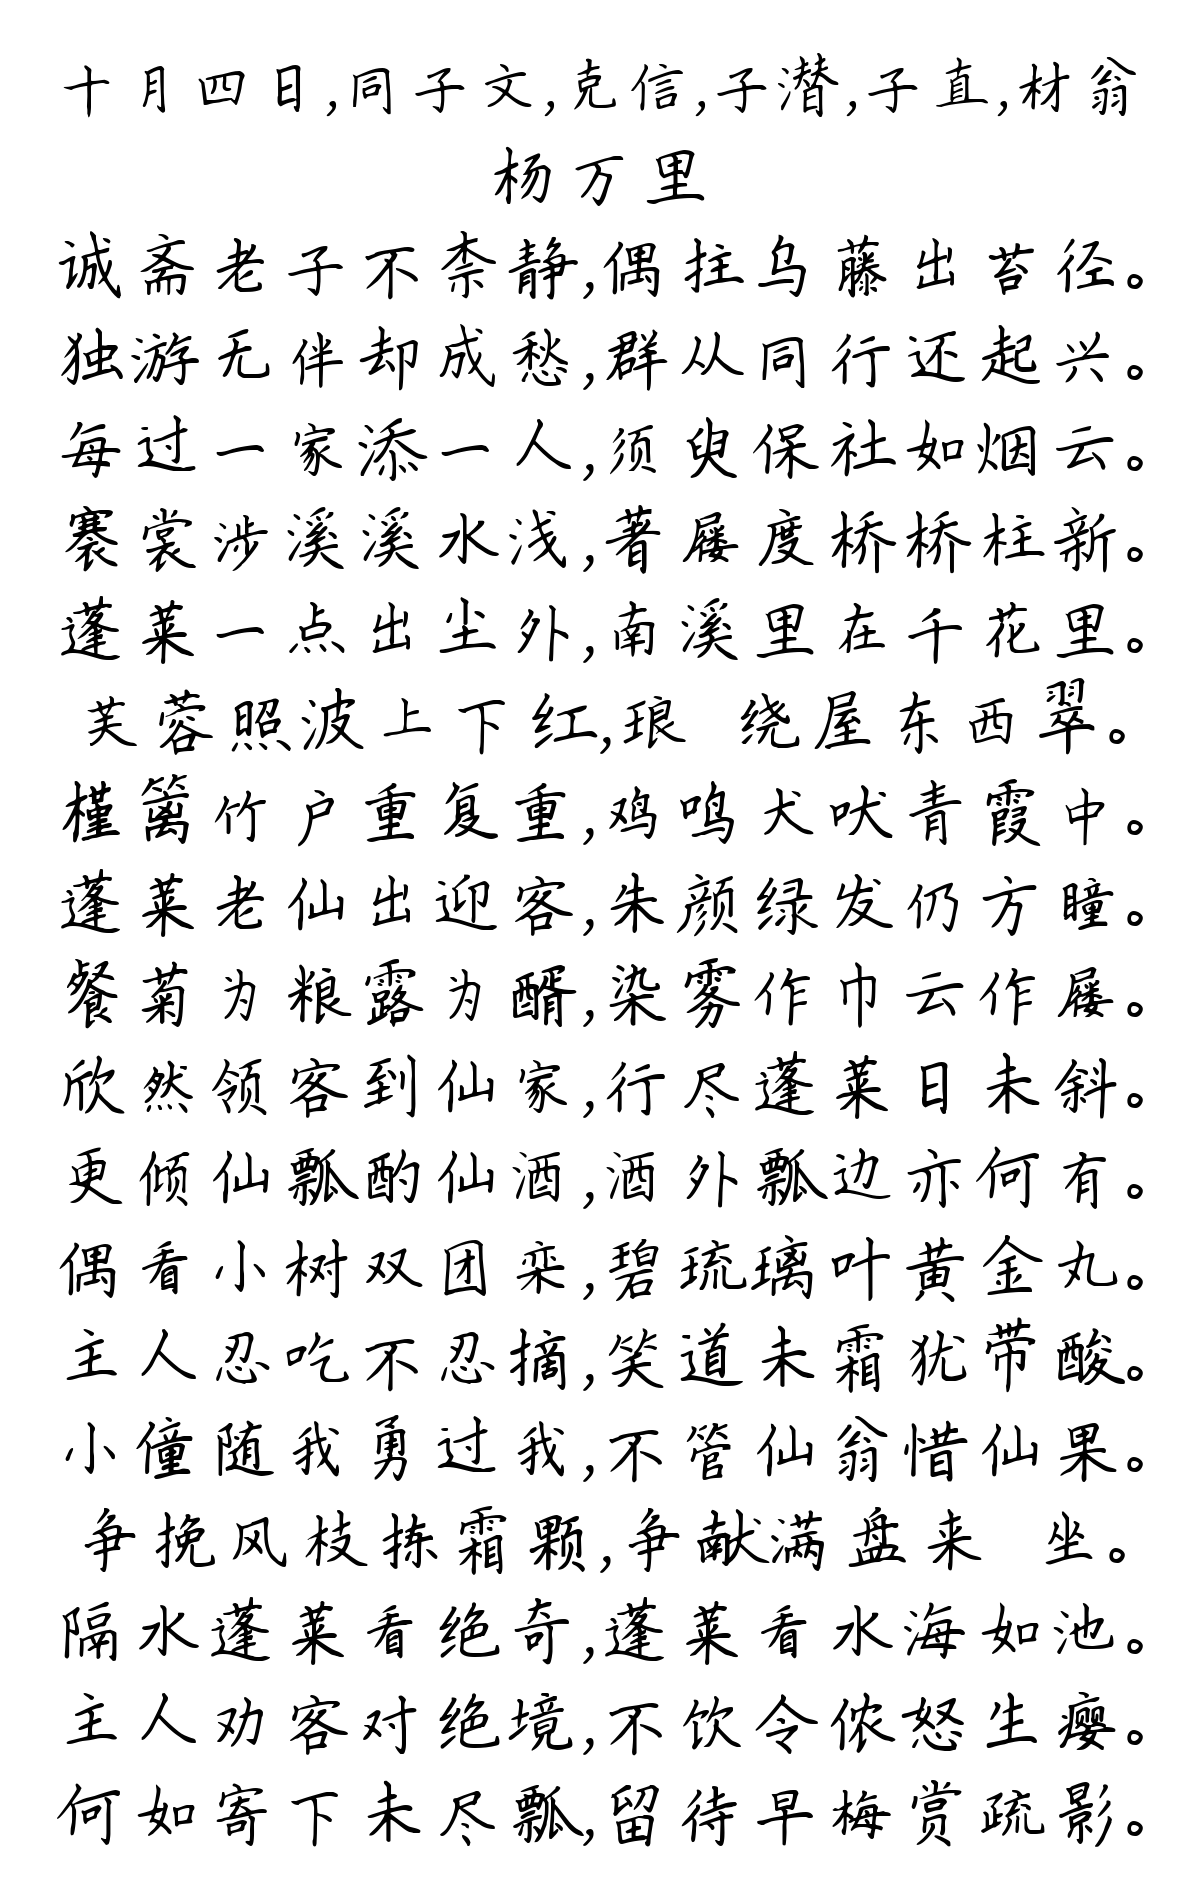 十月四日,同子文,克信,子潜,子直,材翁
杨万里
诚斋老子不柰静,偶拄乌藤出苔径。
独游无伴却成愁,群从同行还起兴。
每过一家添一人,须臾保社如烟云。
褰裳涉溪溪水浅,著屦度桥桥柱新。
蓬莱一点出尘外,南溪里在千花里。
芙蓉照波上下红,琅 绕屋东西翠。
槿篱竹户重复重,鸡鸣犬吠青霞中。
蓬莱老仙出迎客,朱颜绿发仍方瞳。
餐菊为粮露为醑,染雾作巾云作屦。
欣然领客到仙家,行尽蓬莱日未斜。
更倾仙瓢酌仙酒,酒外瓢边亦何有。
偶看小树双团栾,碧琉璃叶黄金丸。
主人忍吃不忍摘,笑道未霜犹带酸。
小僮随我勇过我,不管仙翁惜仙果。
争挽风枝拣霜颗,争献满盘来 坐。
隔水蓬莱看绝奇,蓬莱看水海如池。
主人劝客对绝境,不饮令侬怒生瘿。
何如寄下未尽瓢,留待早梅赏疏影。